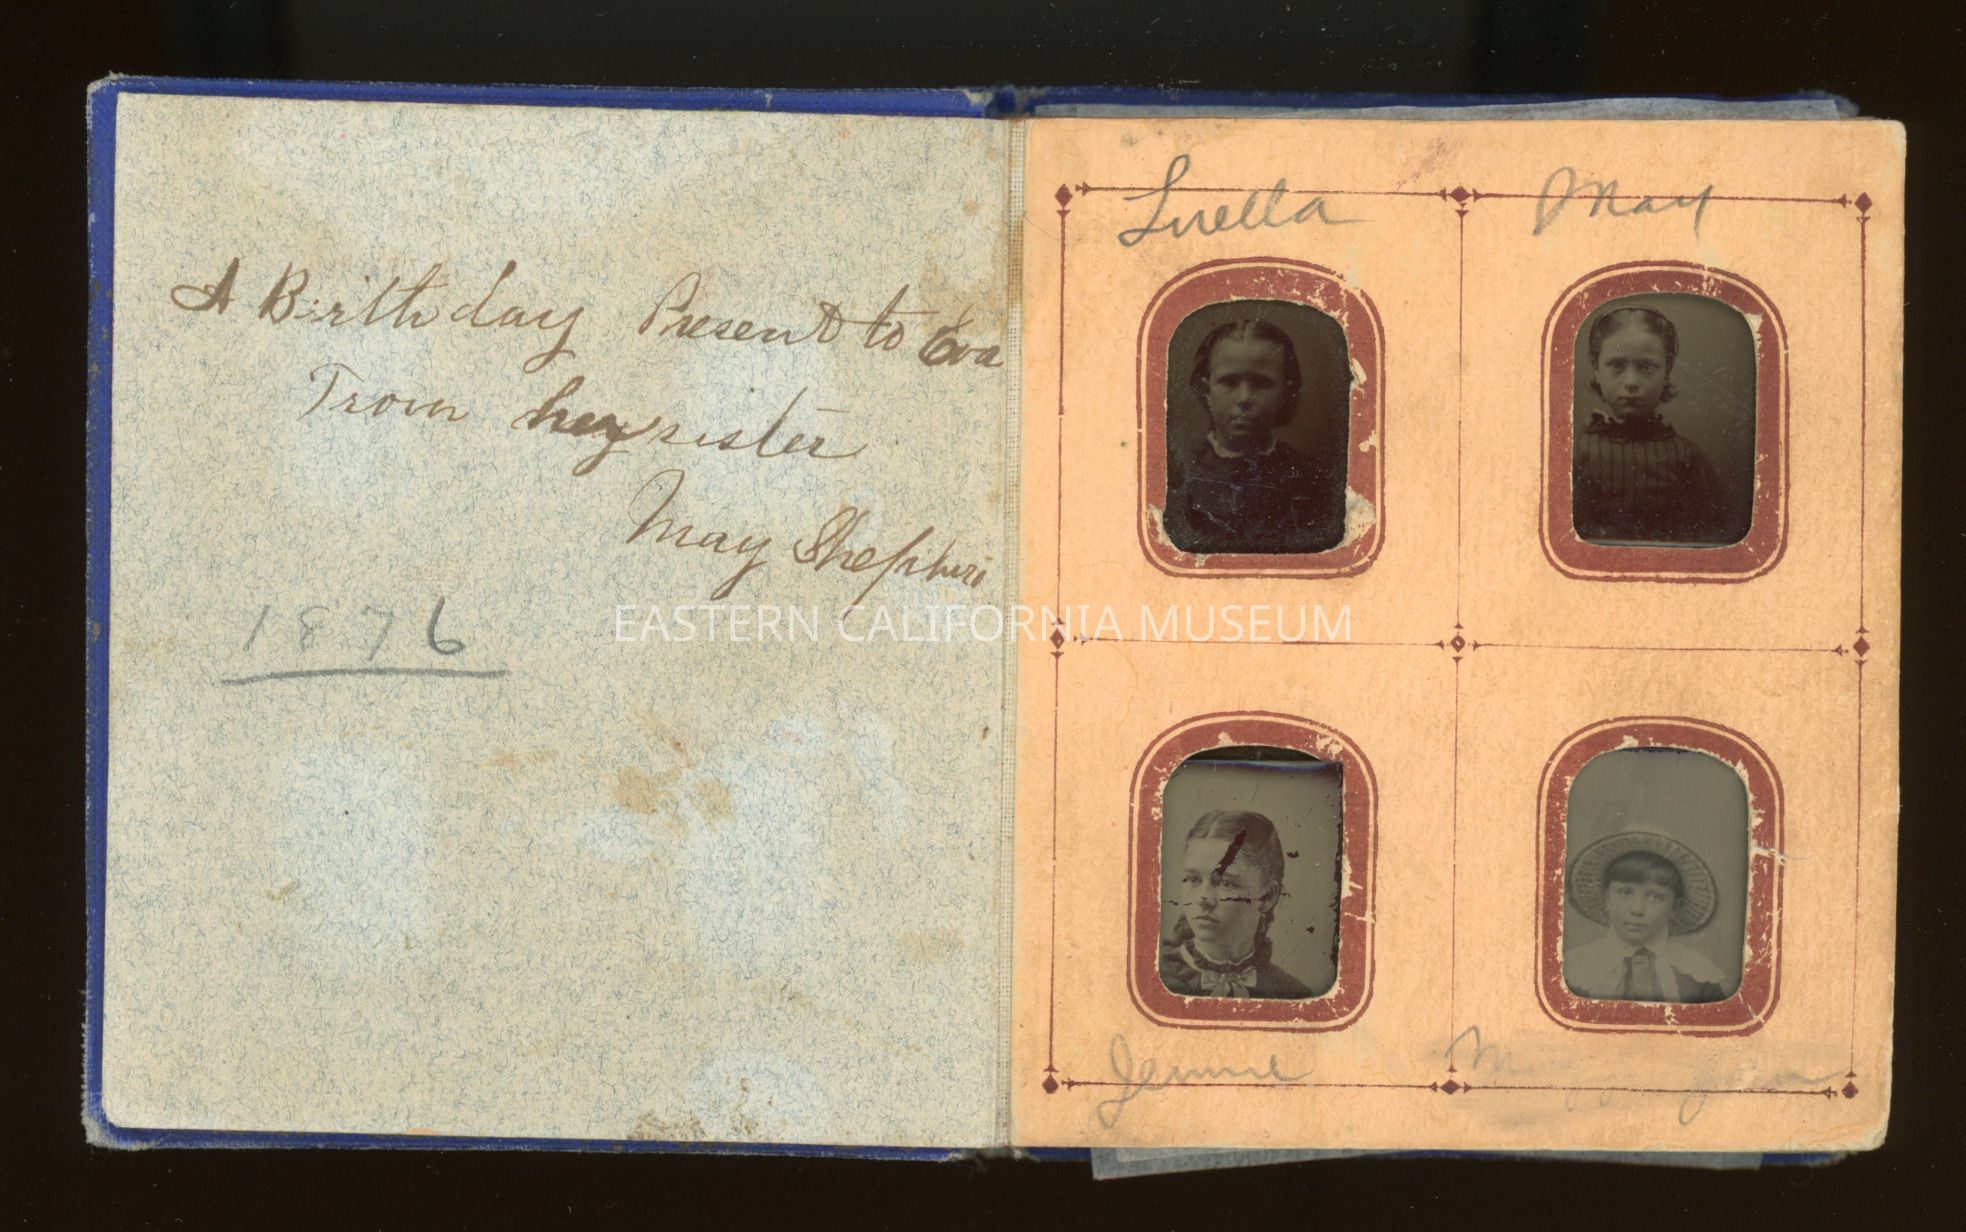 A Birthday Present to Eva
From her sister
May Shepher
1876
EASTERN CALIFORNIA MUSEUM
Luella
May
Jennie